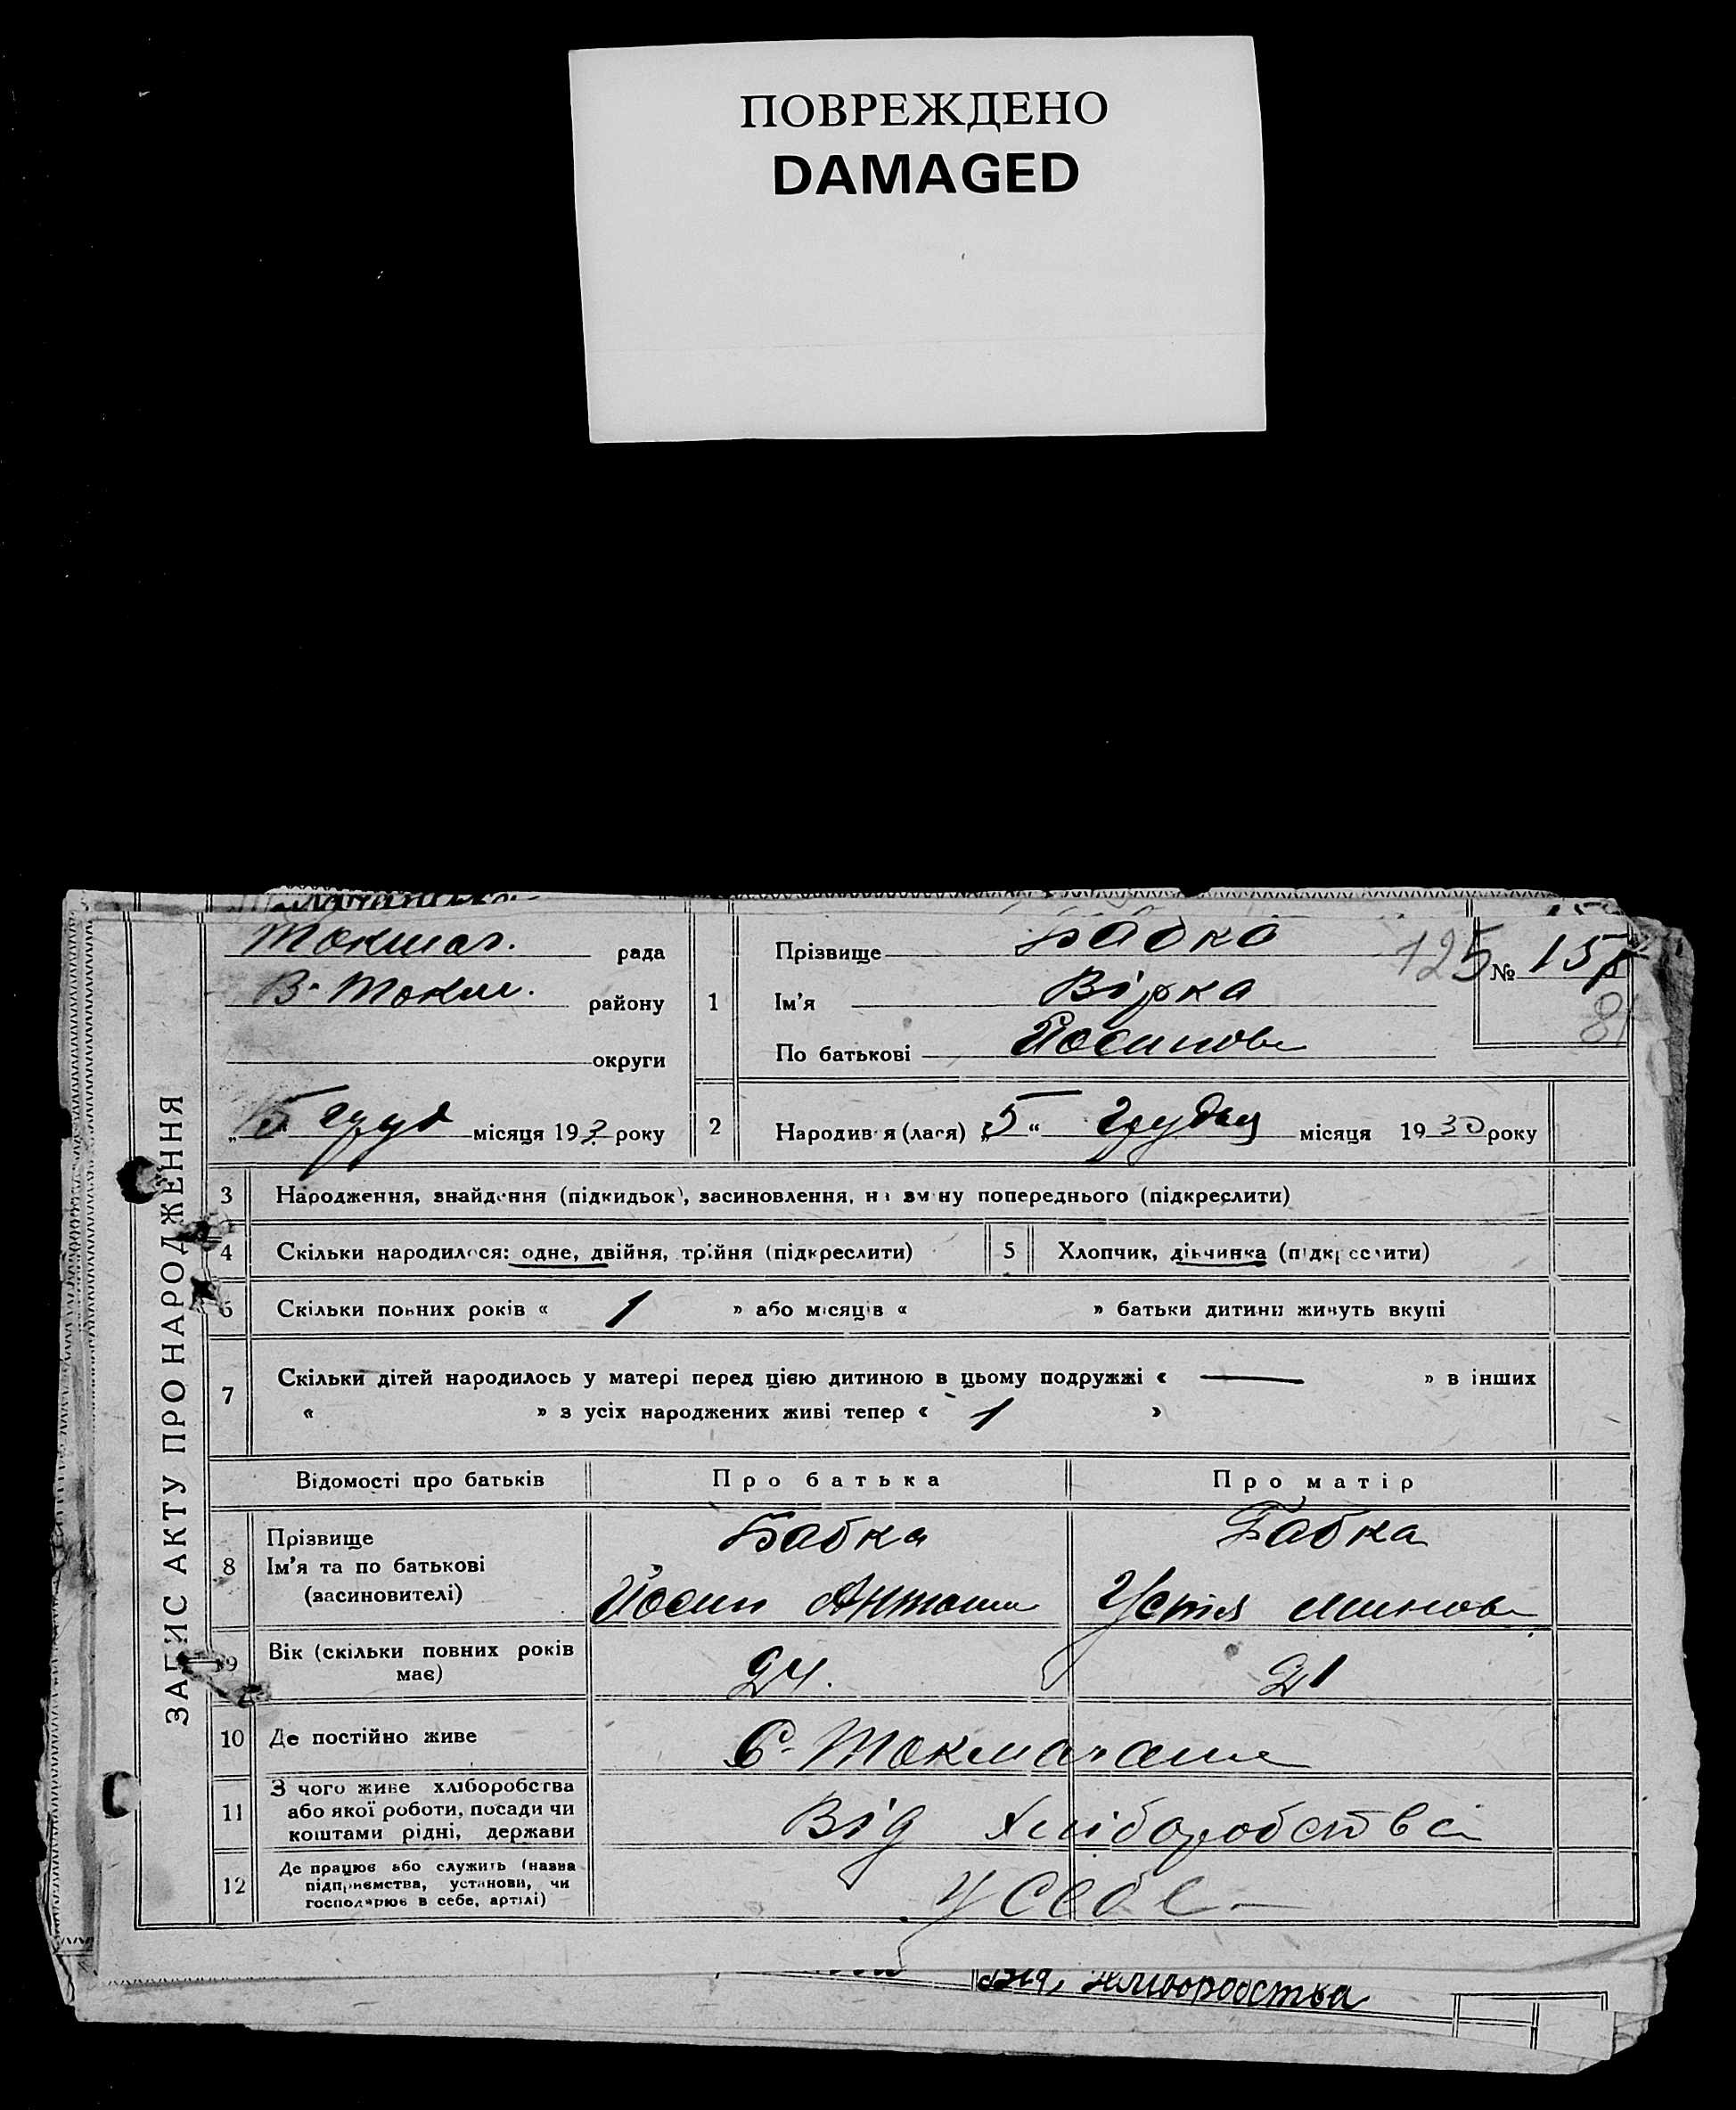 ПОВРЕЖДЕНО
DAMAGED
Токмаг. рада
В-Токм. району
округи
„ 15 груд місяця 193 року
ЗАПИС АКТУ ПРО НАРОДЖЕННЯ
1
Прізвище Бабка
Ім'я Вірка
По батькові Йосипов
125 № 157
81
2 Народився (лася) „5“ Грудня місяця 1930 року
3 Народження, знайдення (підкидьок), засиновлення, на зміну попереднього (підкреслити)
4 Скільки народилося: одне, двійня, трійня (підкреслити)
5 Хлопчик, дівчинка (підкреслити)
6 Скільки повних років « 1 » або місяців « » батьки дитини живуть вкупі
7 Скільки дітей народилось у матері перед цією дитиною в цьому подружжі « — » в інших
« » з усіх народжених живі тепер « 1 »
Відомості про батьків Про батька Про матір
8 Прізвище Бабка Бабка
Ім'я та по батькові
(засиновителі) Йосип Антони Устія
9 Вік (скільки повних років
має) 24. 21
10 Де постійно живе С-Токмачани
11 З чого живе хліборобства
або якої роботи, посади чи
коштами рідні, держави Від хліборобства
12 Де працює або служить (назва
підприємства, установи, чи
господарює в себе, артілі) У себе —
Від хліборобства